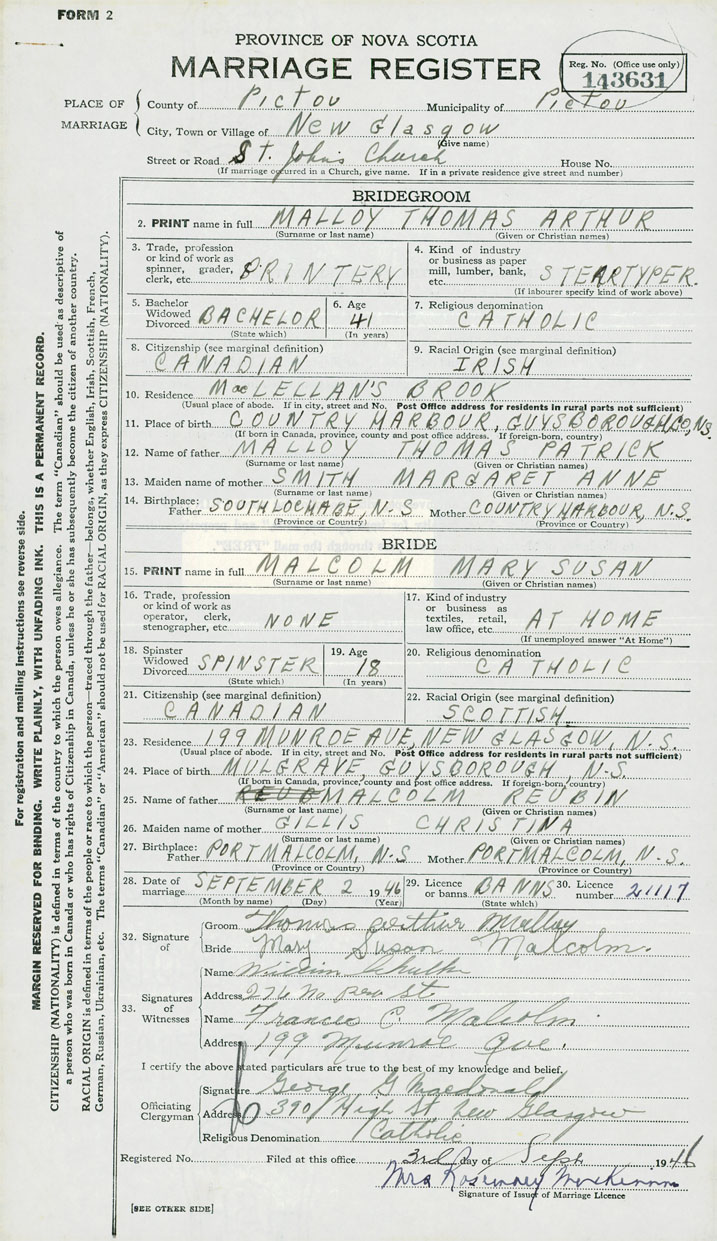 FORM 2
PROVINCE OF NOVA SCOTIA
MARRIAGE REGISTER
Reg. No. (Office use only)
143631
PLACE OF MARRIAGE
County of Pictou Municipality of Pictou
City, Town or Village of New Glasgow
(Give name)
Street or Road St. John's Church House No.
(If marriage occurred in a Church, give name. If in a private residence give street and number)
BRIDEGROOM
2. PRINT name in full MALLOY THOMAS ARTHUR
(Surname or last name) (Given or Christian names)
3. Trade, profession or kind of work as spinner, grader, clerk, etc. PRINTERY
4. Kind of industry or business as paper mill, lumber, bank, etc. STEARTYPER.
(If labourer specify kind of work above)
5. Bachelor Widowed Divorced BACHELOR
(State which)
6. Age 41
(In years)
7. Religious denomination
CATHOLIC
8. Citizenship (see marginal definition)
CANADIAN
9. Racial Origin (see marginal definition)
IRISH
10. Residence MacLELLAN'S BROOK
(Usual place of abode. If in city, street and No. Post Office address for residents in rural parts not sufficient)
11. Place of birth COUNTRY HARBOUR, GUYSBOROUGH, CO, N.S.
(If born in Canada, province, county and post office address. If foreign-born, country)
12. Name of father MALLOY THOMAS PATRICK
(Surname or last name) (Given or Christian names)
13. Maiden name of mother SMITH MARGARET ANNE
(Surname or last name) (Given or Christian names)
14. Birthplace: Father SOUTH LOCHABE, N-S Mother COUNTRY HARBOUR, N.S.
(Province or Country) (Province or Country)
BRIDE
15. PRINT name in full MALCOLM MARY SUSAN
(Surname or last name) (Given or Christian names)
16. Trade, profession or kind of work as operator, clerk, stenographer, etc. NONE
17. Kind of industry or business as textiles, retail, law office, etc. AT HOME
(If unemployed answer "At Home")
18. Spinster Widowed Divorced SPINSTER
(State which)
19. Age 18
(In years)
20. Religious denomination
CATHOLIC
21. Citizenship (see marginal definition)
CANADIAN
22. Racial Origin (see marginal definition)
SCOTTISH
23. Residence 199 MUNROE AVE, NEW GLASGOW, N.S.
(Usual place of abode. If in city, street and No. Post Office address for residents in rural parts not sufficient)
24. Place of birth MULGRAVE GUYSBOROUGH, N-S.
(If born in Canada, province, county and post office address. If foreign-born, country)
25. Name of father MALCOLM REUBIN
(Surname or last name) (Given or Christian names)
26. Maiden name of mother GILLIS CHRISTINA
(Surname or last name) (Given or Christian names)
27. Birthplace: Father PORT MALCOLM, N-S Mother PORT MALCOLM, N-S.
(Province or Country) (Province or Country)
28. Date of marriage SEPTEMBER 2 1946
(Month by name) (Day) (Year)
29. Licence or banns BANNS
(State which)
30. Licence number 21117
32. Signature of
Groom Thomas Arthur Malloy
Bride Mary Susan Malcolm.
33. Signatures of Witnesses
Name William
Address 276 No St.
Name Frances C. Malcolm.
Address 199 Munroe Ave.
I certify the above stated particulars are true to the best of my knowledge and belief,
Officiating Clergyman
Signature George G Macdonald
Address 390 High St. New Glasgow
Religious Denomination Catholic
Registered No. Filed at this office 3rd day of Sept 1946
Mrs
Signature of Issuer of Marriage Licence
[SEE OTHER SIDE]
For registration and mailing instructions see reverse side.
MARGIN RESERVED FOR BINDING. WRITE PLAINLY, WITH UNFADING INK. THIS IS A PERMANENT RECORD.
CITIZENSHIP (NATIONALITY) is defined in terms of the country to which the person owes allegiance. The term "Canadian" should be used as descriptive of
a person who was born in Canada or who has rights of Citizenship in Canada, unless he or she has subsequently become the citizen of another country.
RACIAL ORIGIN is defined in terms of the people or race to which the person—traced through the father—belongs, whether English, Irish, Scottish, French,
German, Russian, Ukrainian, etc. The terms "Canadian" or "American" should not be used for RACIAL ORIGIN, as they express CITIZENSHIP (NATIONALITY).